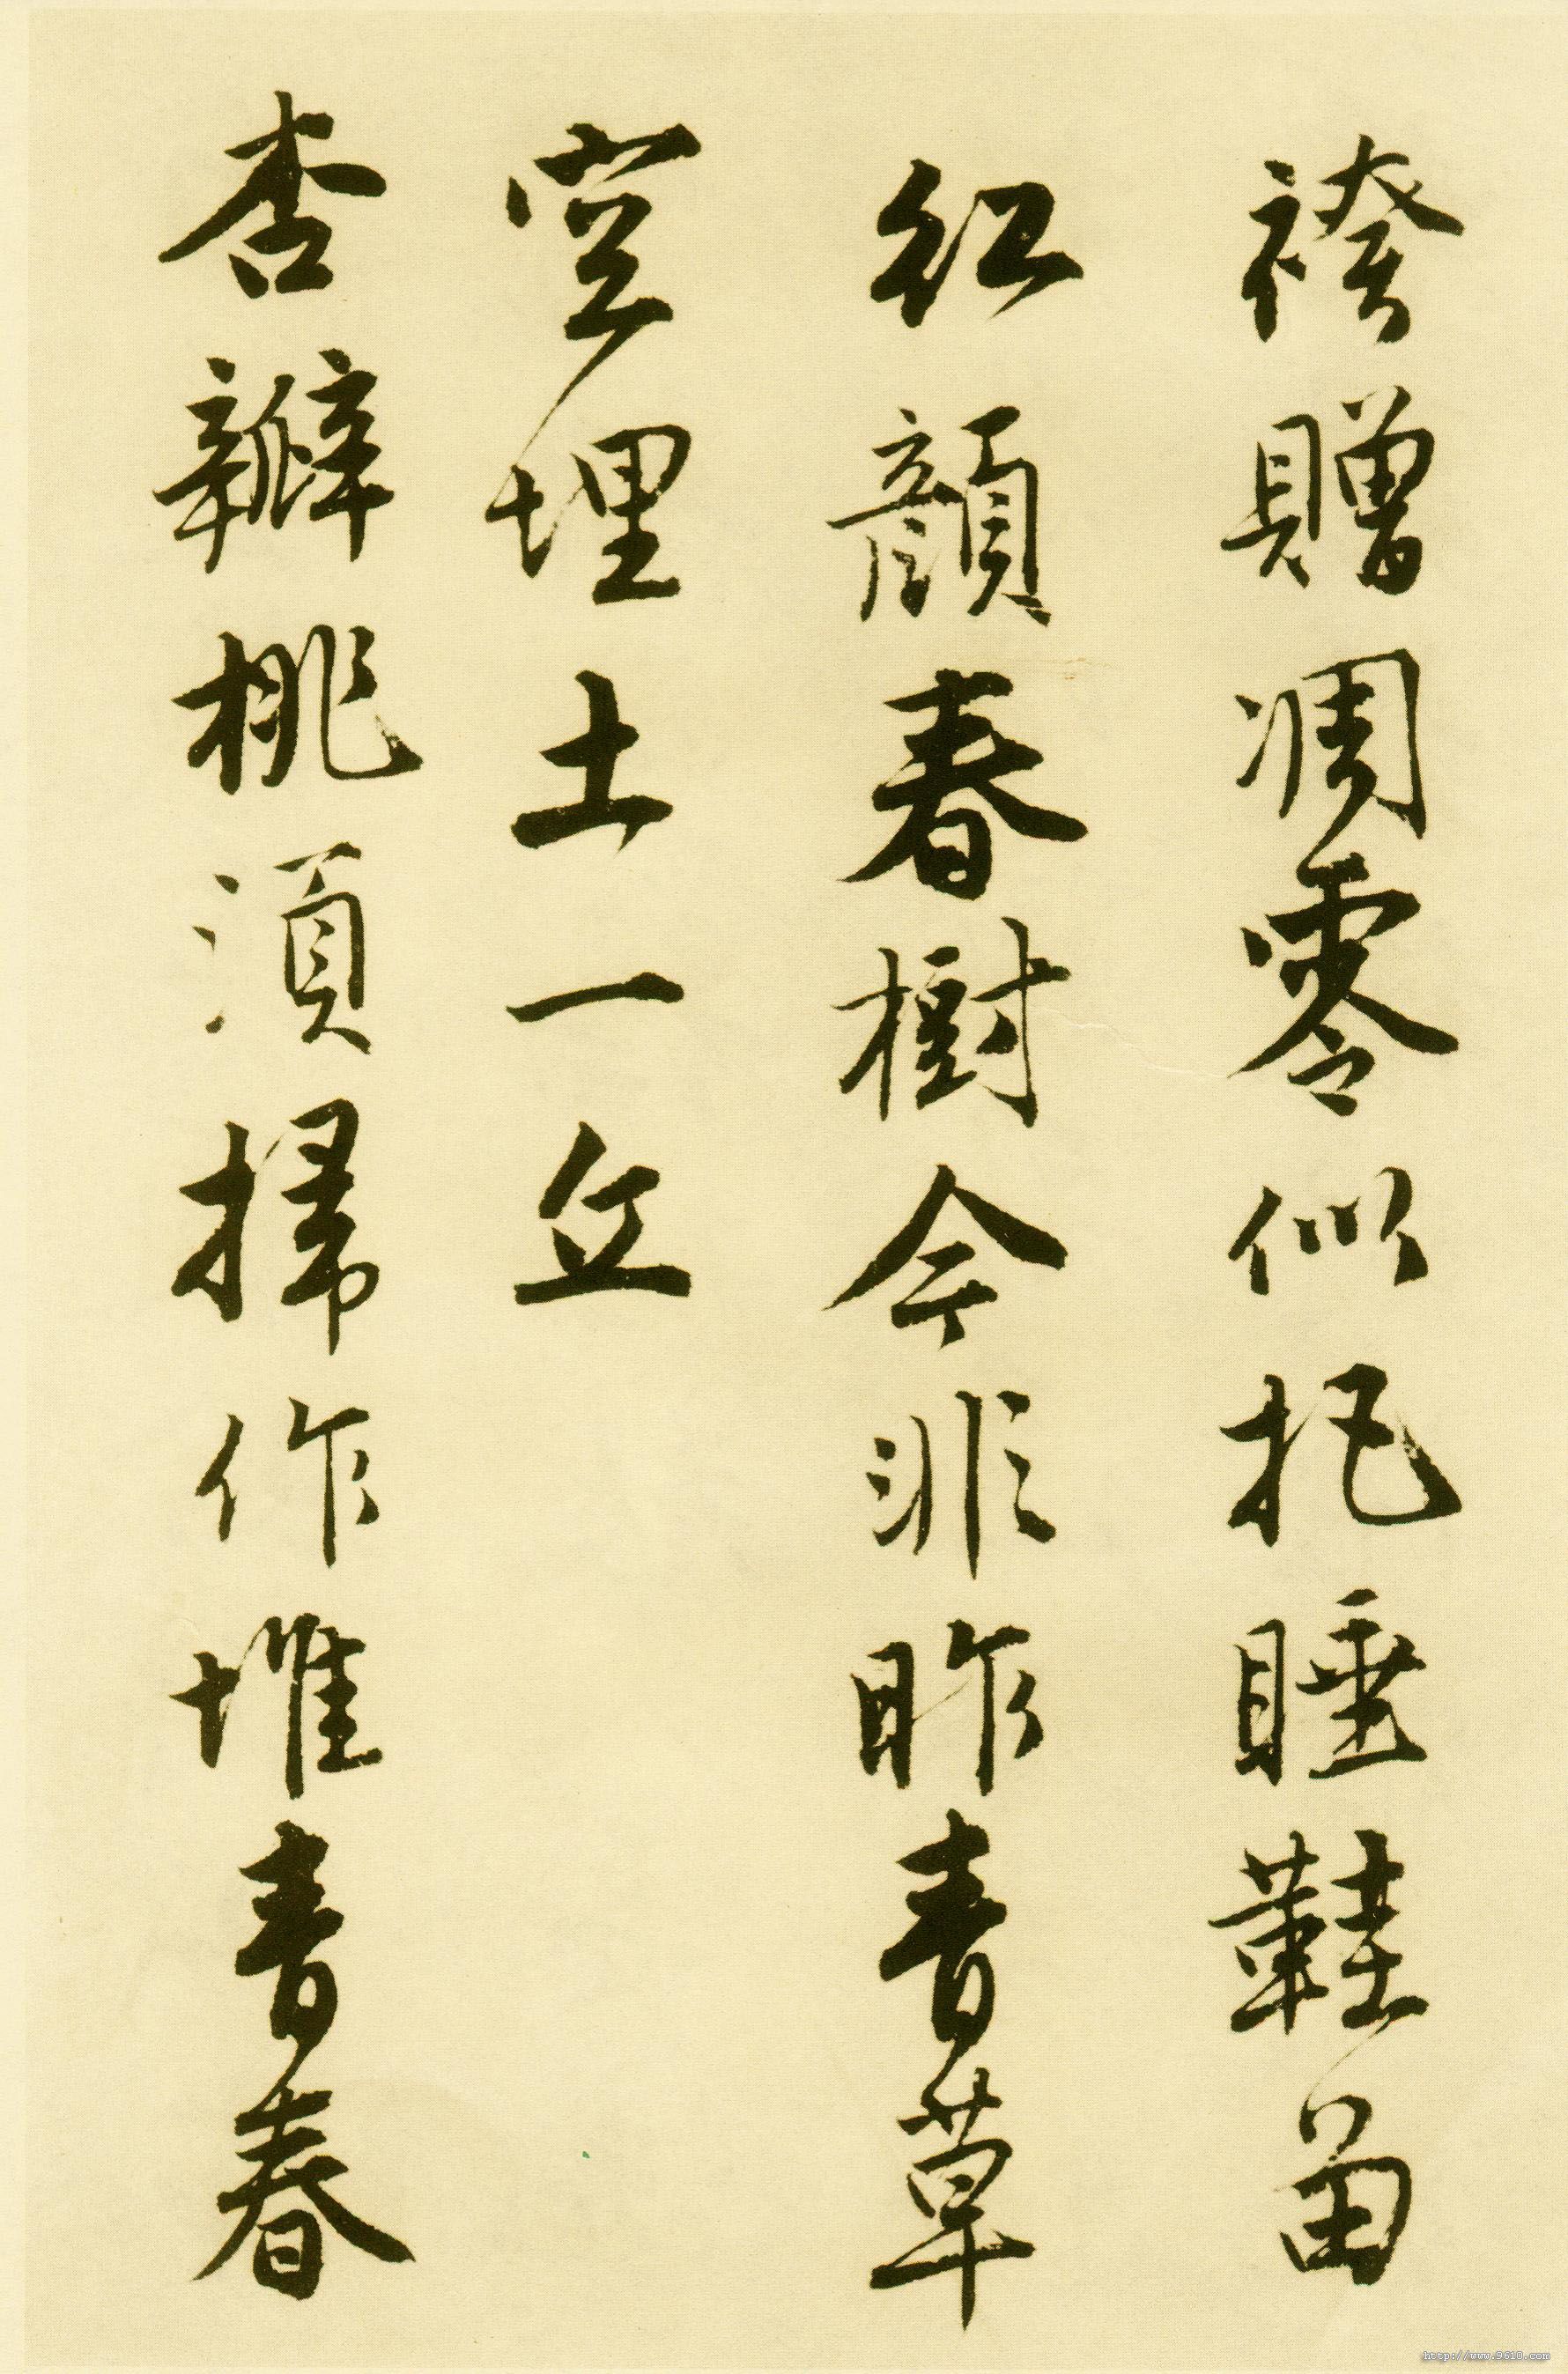 袴贈凋零似把睡鞋留
紅顏春樹今非昨青草
空埋土一丘
杏瓣桃須掃作堆青春
http://www.9610.com